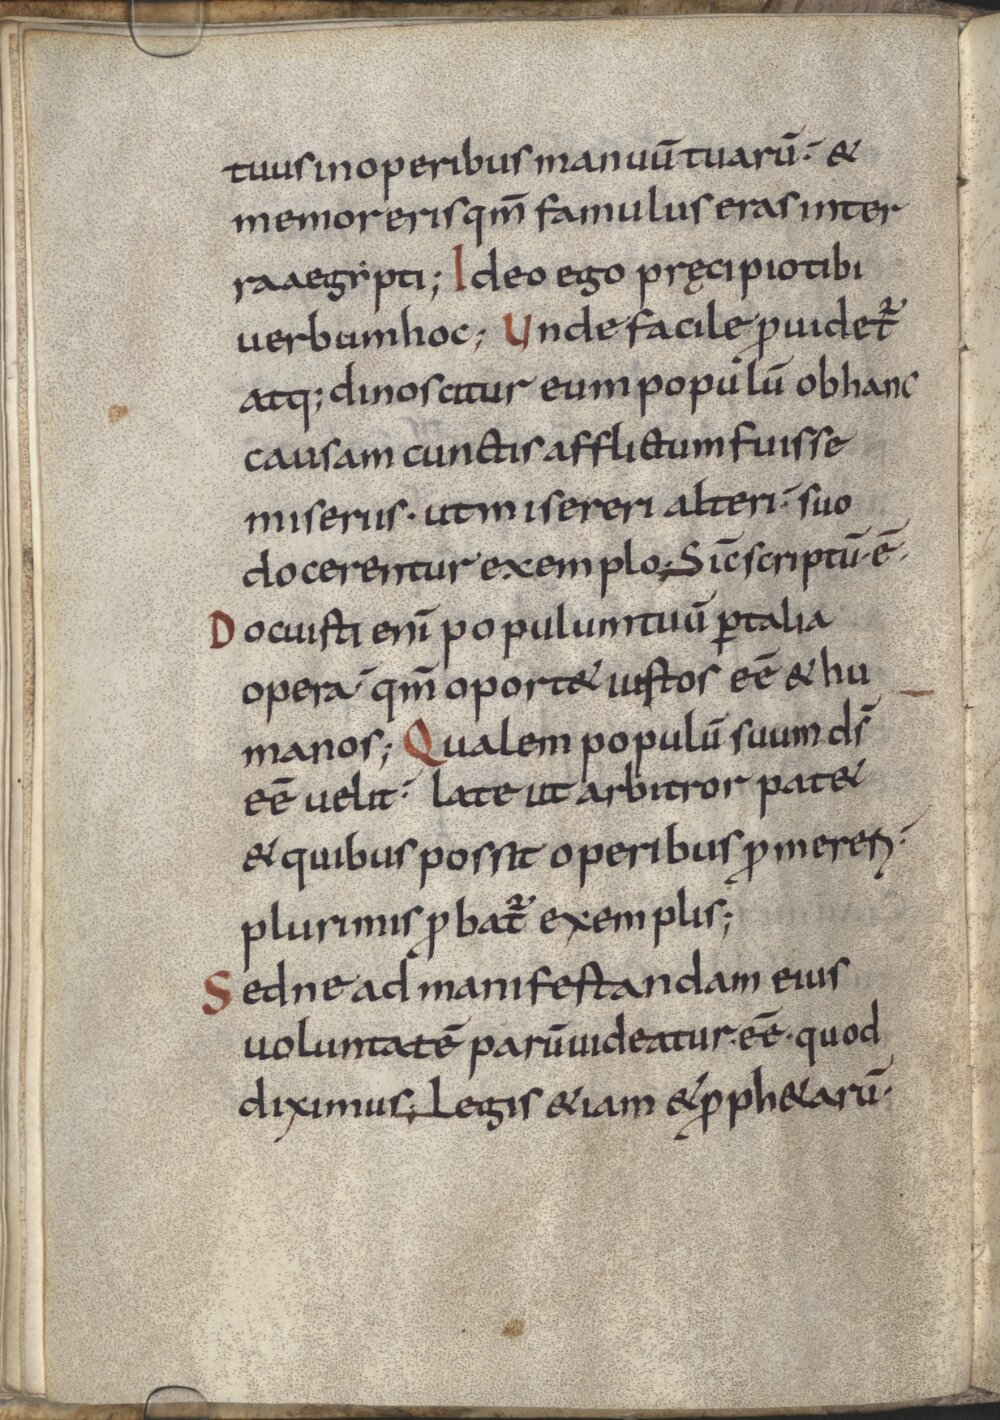 tuus in operibus manuū tuarū. &
memor eris qm̄ famulus eras in ter
ra aegypti; Ideo ego pręcipio tibi
uerbum hoc; Unde facile ꝓuidet᷑
atq; dinoscitur eum populū ob hanc
causam cunctis afflictum fuisse
miseriis· ut misereri alteri· suo
docerentur exemplo; Sic̄ scriptū· ē·
Docuisti enī populum tuū ꝑ talia
opera qm̄ oport& iustos eē & hu
manos; Qualem populū suum ds̄
eē uelit· late ut arbitror pat&
& quibus possit operibus ꝓmereri·
plurimis ꝓbat᷑ exemplis;
Sed ne ad manifestandam eius
uoluntatē parū uideatur· eē· quod
diximus; Legis &iam & ꝓph&arū·